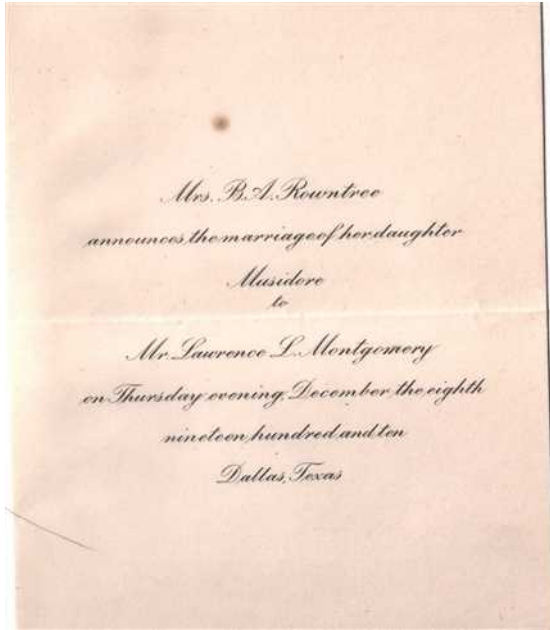 Mrs. B. A. Rowntree
announces the marriage of her daughter
Musidore
to
Mr. Lawrence L. Montgomery
on Thursday evening, December the eighth
nineteen hundred and ten
Dallas, Texas